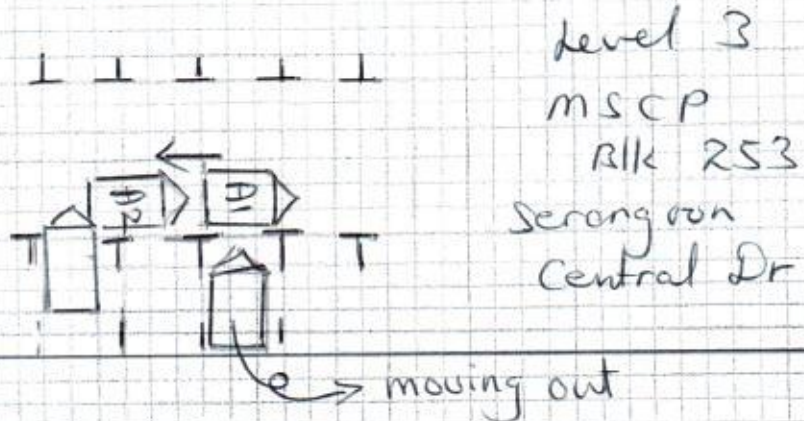 Level 3
MSCP
Blk 253
Serangoon
Central Dr
D2
D1
moving out